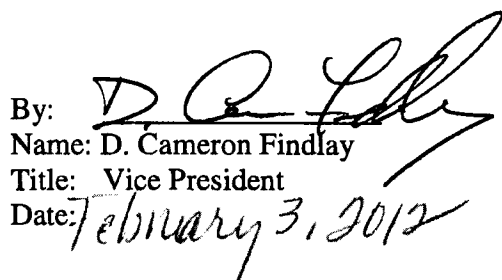 By: D. Cameron Findlay
Name: D. Cameron Findlay
Title: Vice President
Date: February 3, 2012